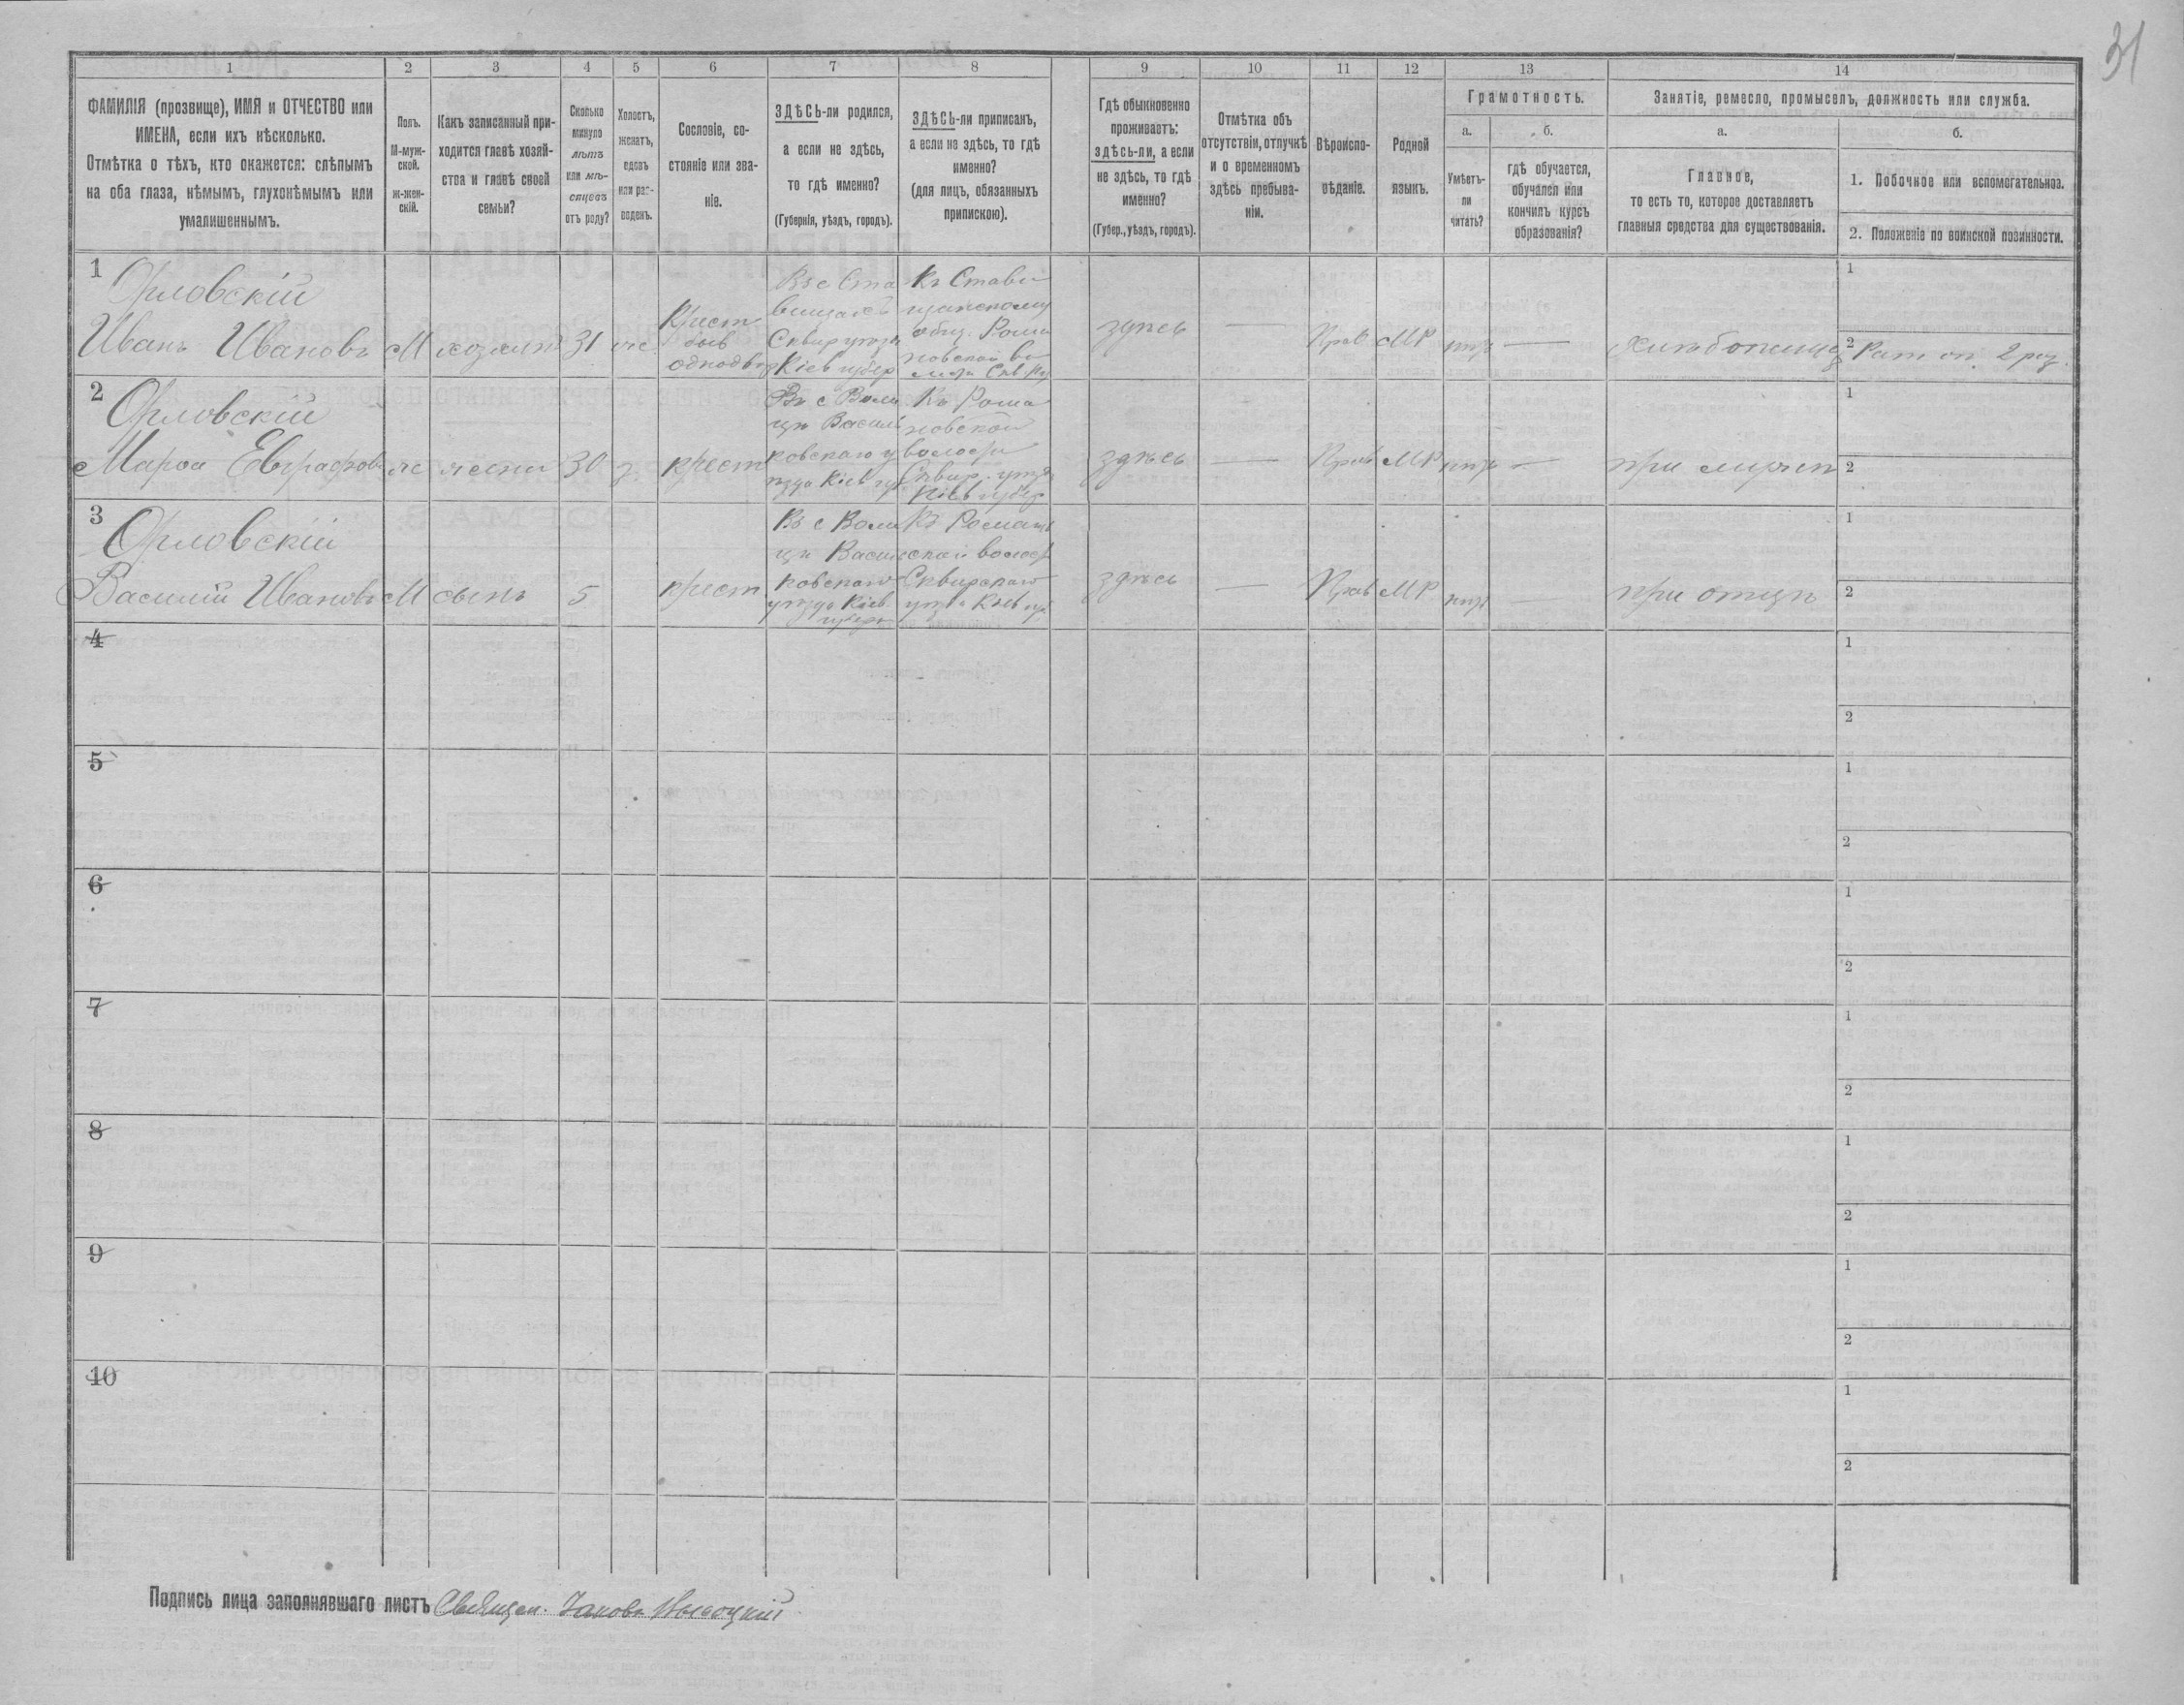 31
1 2 3 4 5 6 7 8 9 10 11 12 13 14
ФАМИЛІЯ (прозвище), ИМЯ и ОТЧЕСТВО или
ИМЕНА, если ихъ нѣсколько.
Отмѣтка о тѣхъ, кто окажется: слѣпымъ
на оба глаза, нѣмымъ, глухонѣмымъ или
умалишеннымъ.
Полъ.
М-муж-
ской.
Ж-жен-
скій.
Какъ записанный при-
ходится главѣ хозяй-
ства и главѣ своей
семьи?
Сколько
минуло
лѣтъ
или мѣ-
сяцевъ
отъ роду?
Холостъ,
женатъ,
вдовъ
или раз-
веденъ.
Сословіе, со-
стояніе или зва-
ніе.
ЗДѢСЬ-ли родился,
а если не здѣсь,
то гдѣ именно?
(Губернія, уѣздъ, городъ).
ЗДѢСЬ-ли приписанъ,
а если не здѣсь, то гдѣ
именно?
(для лицъ, обязанныхъ
припискою).
Гдѣ обыкновенно
проживаетъ:
здѣсь-ли, а если
не здѣсь, то гдѣ
именно?
(Губер., уѣздъ, городъ).
Отмѣтка объ
отсутствіи, отлучкѣ
и о временномъ
здѣсь пребыва-
ніи.
Вѣроиспо-
вѣданіе.
Родной
языкъ.
Грамотность.
а.
Умѣетъ-
ли
читать?
б.
гдѣ обучается,
обучался или
кончилъ курсъ
образованія?
Занятіе, ремесло, промыселъ, должность или служба.
а.
Главное,
то есть то, которое доставляетъ
главныя средства для существованія.
б.
1. Побочное или вспомогательное.
2. Положеніе по воинской повинности.
1
Орловскій
Иванъ Ивановъ
М
хозяинъ
31
ж.
Крест
одподв
Въ с Ста
вищахъ
Сквир уѣзд
Кіев губер
Къ Стави
щанскому
общ. Рома
новской во
здѣсь
—
Прав
МР
нѣт
—
хлебопашец
1
2 Рат оп. 2 раз.
2
Орловскій
Марѳа Евграфов
ж
жена
30
з.
крест
Въ с Воли
цѣ Василь
ковскаго у
ѣзда Кіев гу
Къ Рома
новской
волости
Сквир. уѣзд
Кіев губер
здѣсь
—
Прав
МР
нѣт
—
при мужѣ
1
2
3
Орловскій
Василій Ивановъ
М
сынъ
5
крест
Въ с Воли
цѣ Василь
ковскаго
уѣзда Кіев
губерн
Къ Роман
ской волост
Сквирскаго
уѣзда Кіев губ
здѣсь
—
Прав
МР
нѣт
—
при отцѣ
1
2
4
1
2
5
1
2
6
1
2
7
1
2
8
1
2
9
1
2
10
1
2
Подпись лица заполнявшаго листъ Священ. Іаковъ Высоцкій